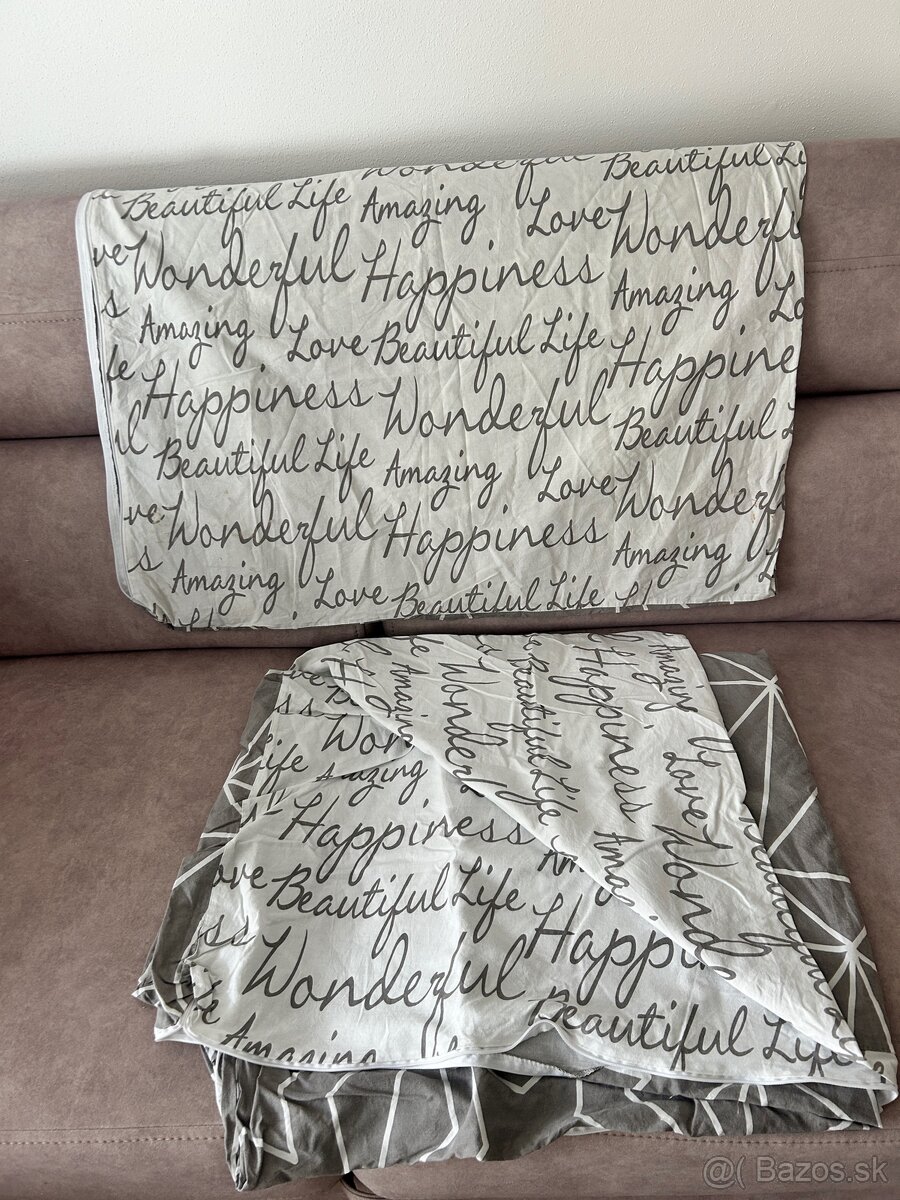 Wonderful Beautiful
Beautiful Life Amazing Love Wonderful
Wonderful Happiness Amazing
Amazing Love Beautiful Life
Happiness Wonderful
Beautiful Life Amazing Beautiful
Wonderful Happiness Love
Amazing Amazing
Love Beautiful Life
Amazing
Happiness
Beautiful Life
Love
Amazing
Happiness
Love Beautiful Life
Wonderful
Beautiful Life
Amazing
@( Bazos.sk